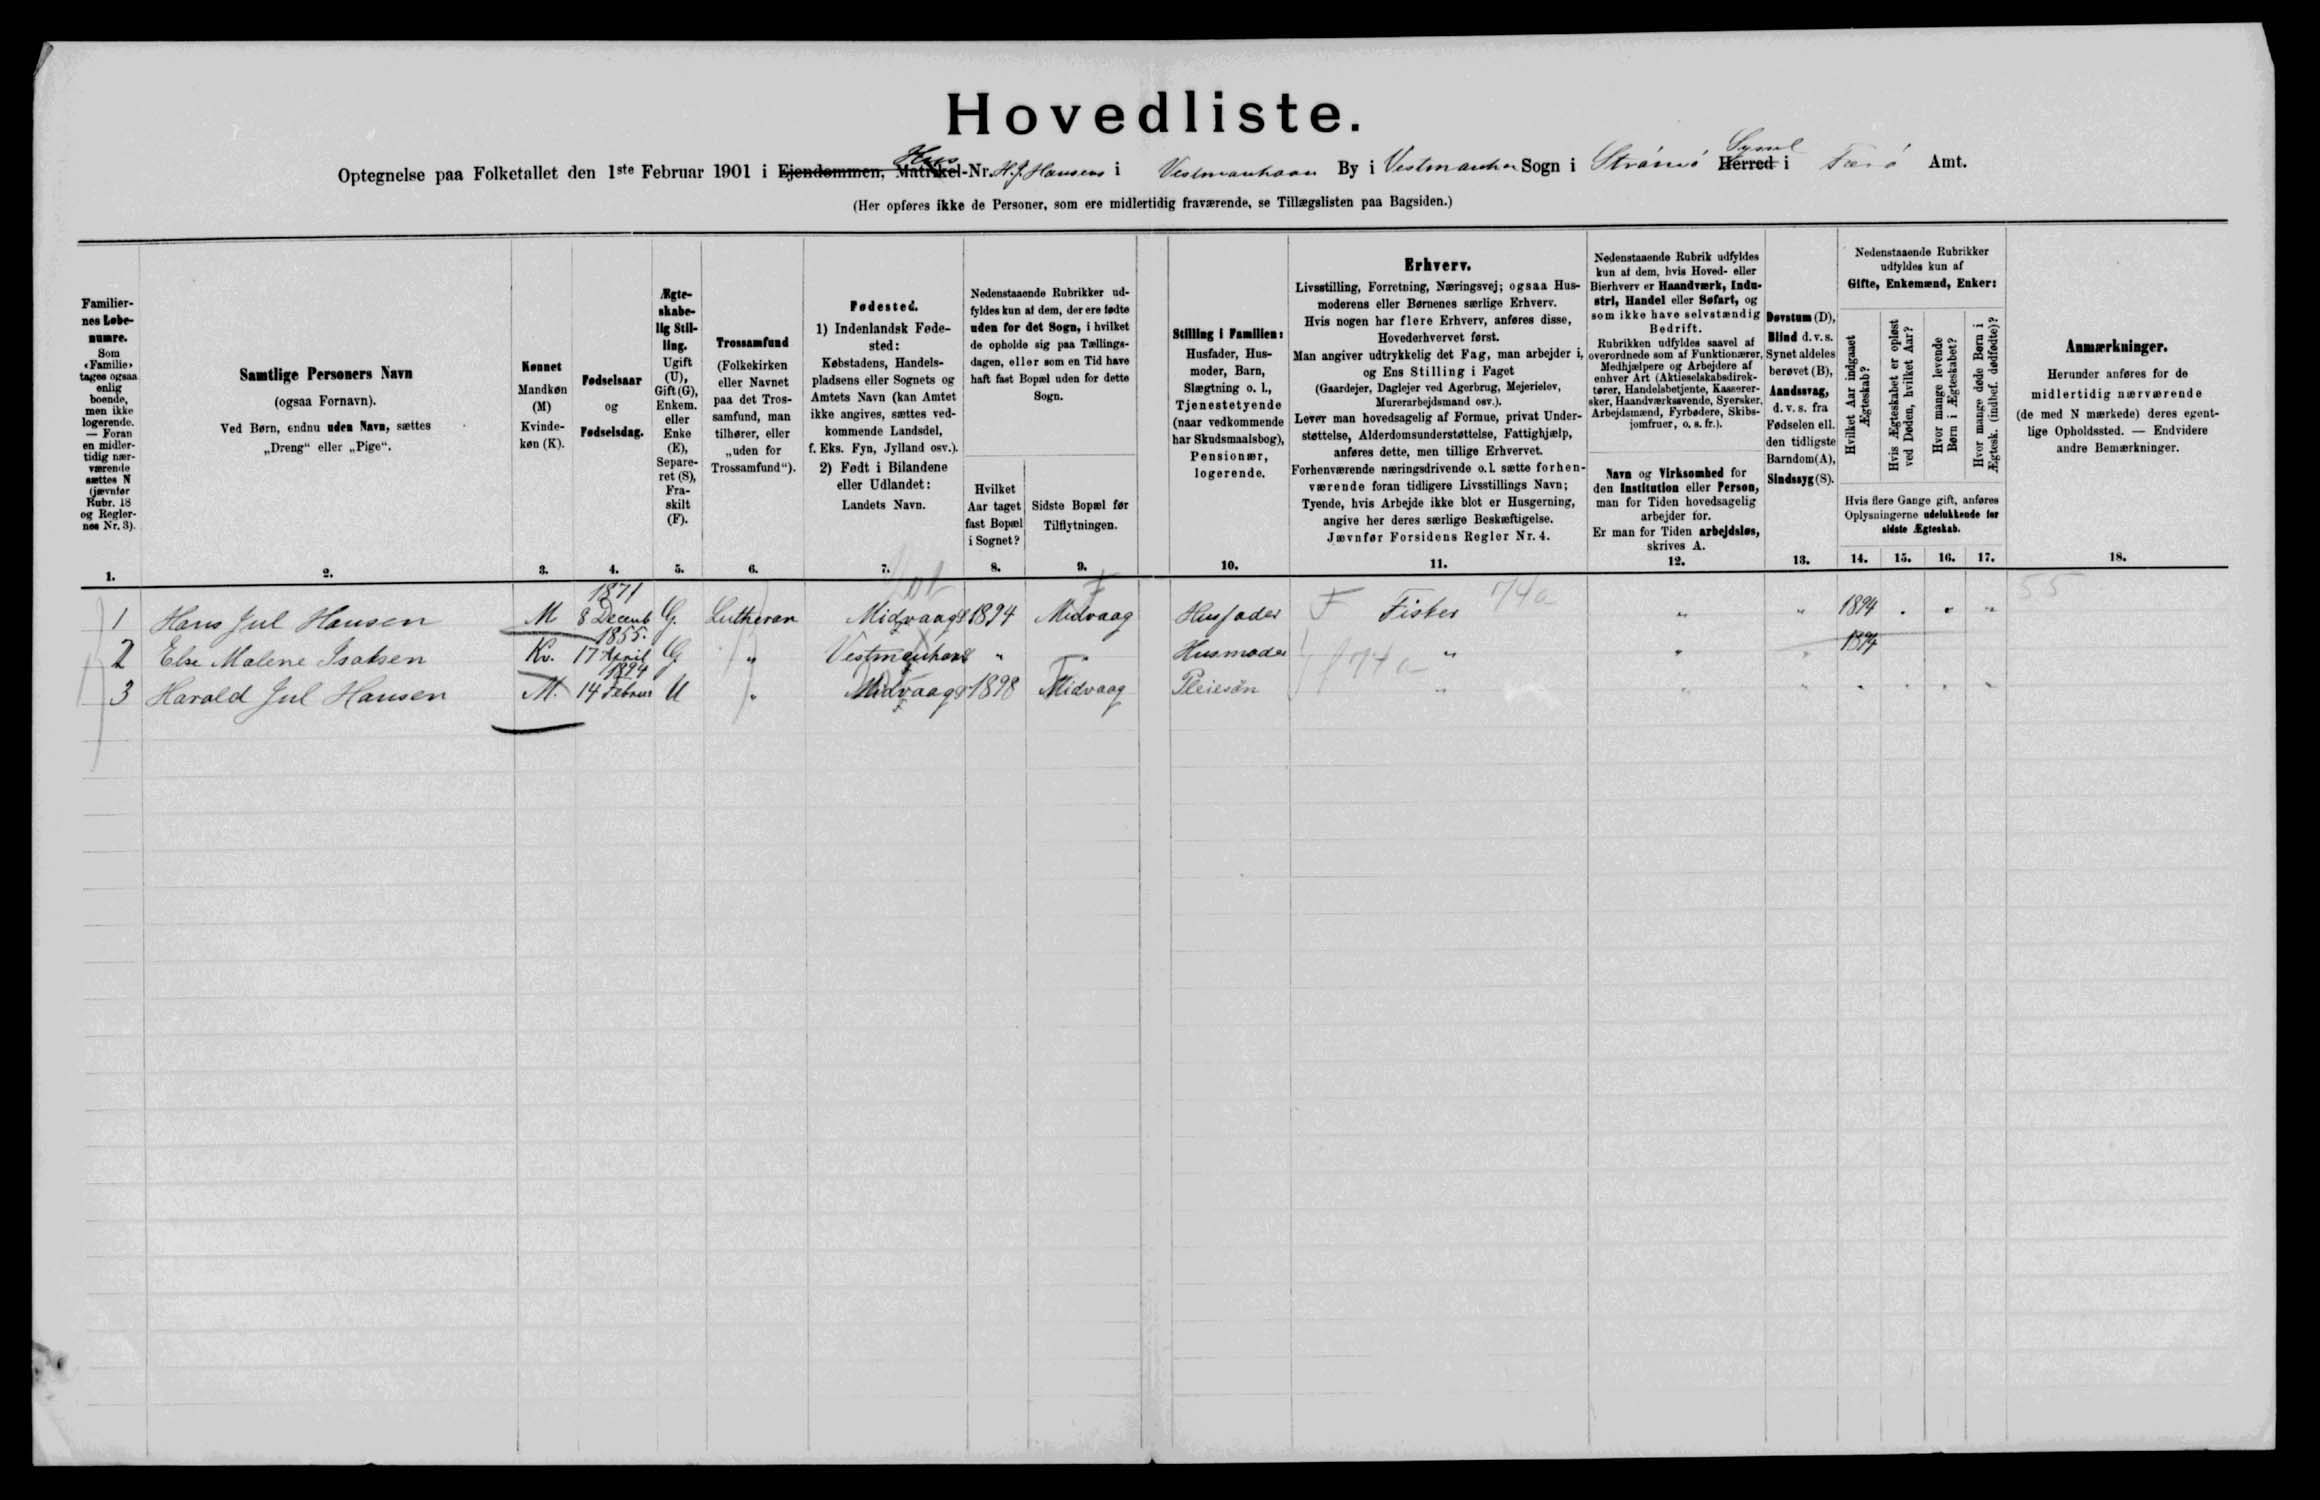 Hovedliste.
Hus
Syssel
Optegnelse paa Folketallet den 1ste Februar 1901 i Ejendommen, Matrikel-Nr. H. J. Hansens i Vestmanhavn By i Vestmanhavn Sogn i Strømø Herred i Færø Amt.
(Her opføres ikke de Personer, som ere midlertidig fraværende, se Tillægslisten paa Bagsiden.)
Familiernes Løbenumre.
Som «Familie» tages ogsaa enlig boende, men ikke logerende. — Foran en midlertidig nærværende sættes N (jævnfør Rubr. 18 og Reglernes Nr. 3).
Samtlige Personers Navn
(ogsaa Fornavn).
Ved Børn, endnu uden Navn, sættes
„Dreng“ eller „Pige“.
Kønnet
Mandkøn (M)
Kvindekøn (K).
Fødselsaar
og
Fødselsdag.
Ægteskabelig Stilling.
Ugift (U), Gift (G), Enkem. eller Enke (E), Separeret (S), Fraskilt (F).
Trossamfund
(Folkekirken eller Navnet paa det Trossamfund, man tilhører, eller „uden for Trossamfund“).
Fødested.
1) Indenlandsk Fødested:
Købstadens, Handelspladsens eller Sognets og Amtets Navn (kan Amtet ikke angives, sættes vedkommende Landsdel, f. Eks. Fyn, Jylland osv.).
2) Født i Bilandene eller Udlandet:
Landets Navn.
Nedenstaaende Rubrikker udfyldes kun af dem, der ere fødte uden for det Sogn, i hvilket de opholde sig paa Tællingsdagen, eller som en Tid have haft fast Bopæl uden for dette Sogn.
Hvilket Aar taget fast Bopæl i Sognet?
Sidste Bopæl før Tilflytningen.
Stilling i Familien:
Husfader, Husmoder, Barn, Slægtning o. l., Tjenestetyende (naar vedkommende har Skudsmaalsbog), Pensionær, logerende.
Erhverv.
Livsstilling, Forretning, Næringsvej; ogsaa Husmoderens eller Børnenes særlige Erhverv.
Hvis nogen har flere Erhverv, anføres disse, Hovederhvervet først.
Man angiver udtrykkelig det Fag, man arbejder i, og Ens Stilling i Faget
(Gaardejer, Daglejer ved Agerbrug, Mejerielev, Murerarbejdsmand osv.).
Lever man hovedsagelig af Formue, privat Understøttelse, Alderdomsunderstøttelse, Fattighjælp, anføres dette, men tillige Erhvervet.
Forhenværende næringsdrivende o. l. sætte forhenværende foran tidligere Livsstillings Navn;
Tyende, hvis Arbejde ikke blot er Husgerning, angive her deres særlige Beskæftigelse.
Jævnfør Forsidens Regler Nr. 4.
Nedenstaaende Rubrik udfyldes kun af dem, hvis Hoved- eller Bierhverv er Haandværk, Industri, Handel eller Søfart, og som ikke have selvstændig Bedrift.
Rubrikken udfyldes saavel af overordnede som af Funktionærer, Medhjælpere og Arbejdere af enhver Art (Aktieselskabsdirektører, Handelsbetjente, Kasserersker, Haandværkssvende, Syersker, Arbejdsmænd, Fyrbødere, Skibsjomfruer, o. s. fr.).
Navn og Virksomhed for den Institution eller Person, man for Tiden hovedsagelig arbejder for.
Er man for Tiden arbejdsløs, skrives A.
Døvstum (D), Blind d. v. s. Synet aldeles berøvet (B), Aandssvag, d. v. s. fra Fødselen ell. den tidligste Barndom (A), Sindssyg (S).
Nedenstaaende Rubrikker udfyldes kun af
Gifte, Enkemænd, Enker:
Hvilket Aar indgaaet Ægteskab?
Hvis Ægteskabet er opløst ved Døden, hvilket Aar?
Hvor mange levende Børn i Ægteskabet?
Hvor mange døde Børn i Ægtesk. (indbef. dødfødte)?
Hvis flere Gange gift, anføres Oplysningerne udelukkende for sidste Ægteskab.
Anmærkninger.
Herunder anføres for de midlertidig nærværende (de med N mærkede) deres egentlige Opholdssted. — Endvidere andre Bemærkninger.
1. 2. 3. 4. 5. 6. 7. 8. 9. 10. 11. 12. 13. 14. 15. 16. 17. 18.
1 Hans Jul Hansen M 1871 8 Decemb G. Lutheran Midvaag 1894 Midvaag Husfader F Fisker 74a " " 1894 . " " 55
2 Else Malene Isaksen Kv. 1855. 17 April G " Vestmanhavn " " Husmoder 74a " " " 1894
3 Harald Jul Hansen M. 1894 14 Februar U " Midvaag 1898 Midvaag Pleiesøn " " " " " " "